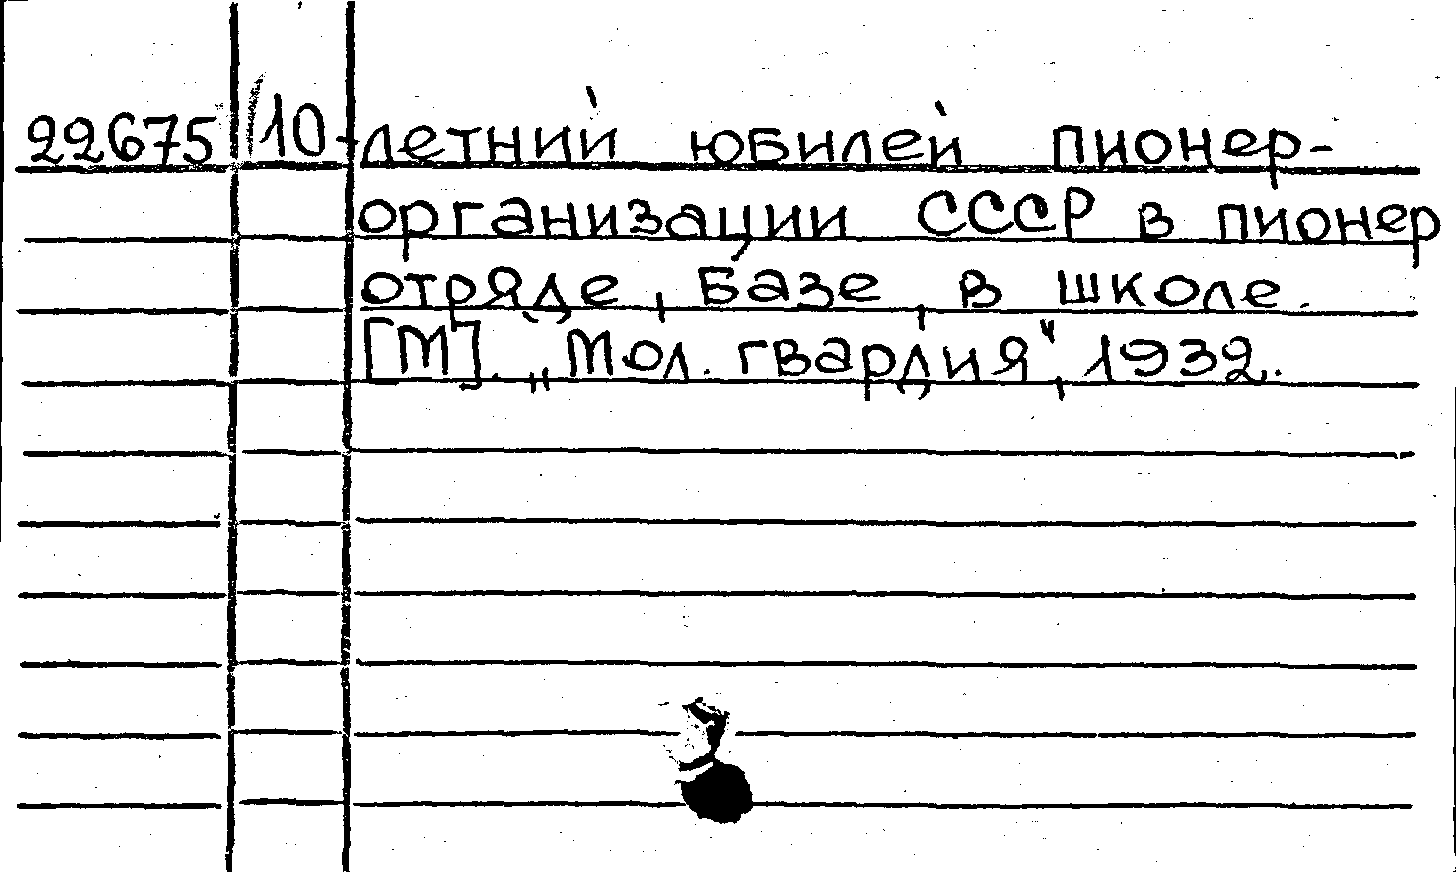 22675 10-летний юбилей пионер-
организации СССР в пионер
отряде, базе, в школе.
[М]. „Мол. гвардия", 1932.